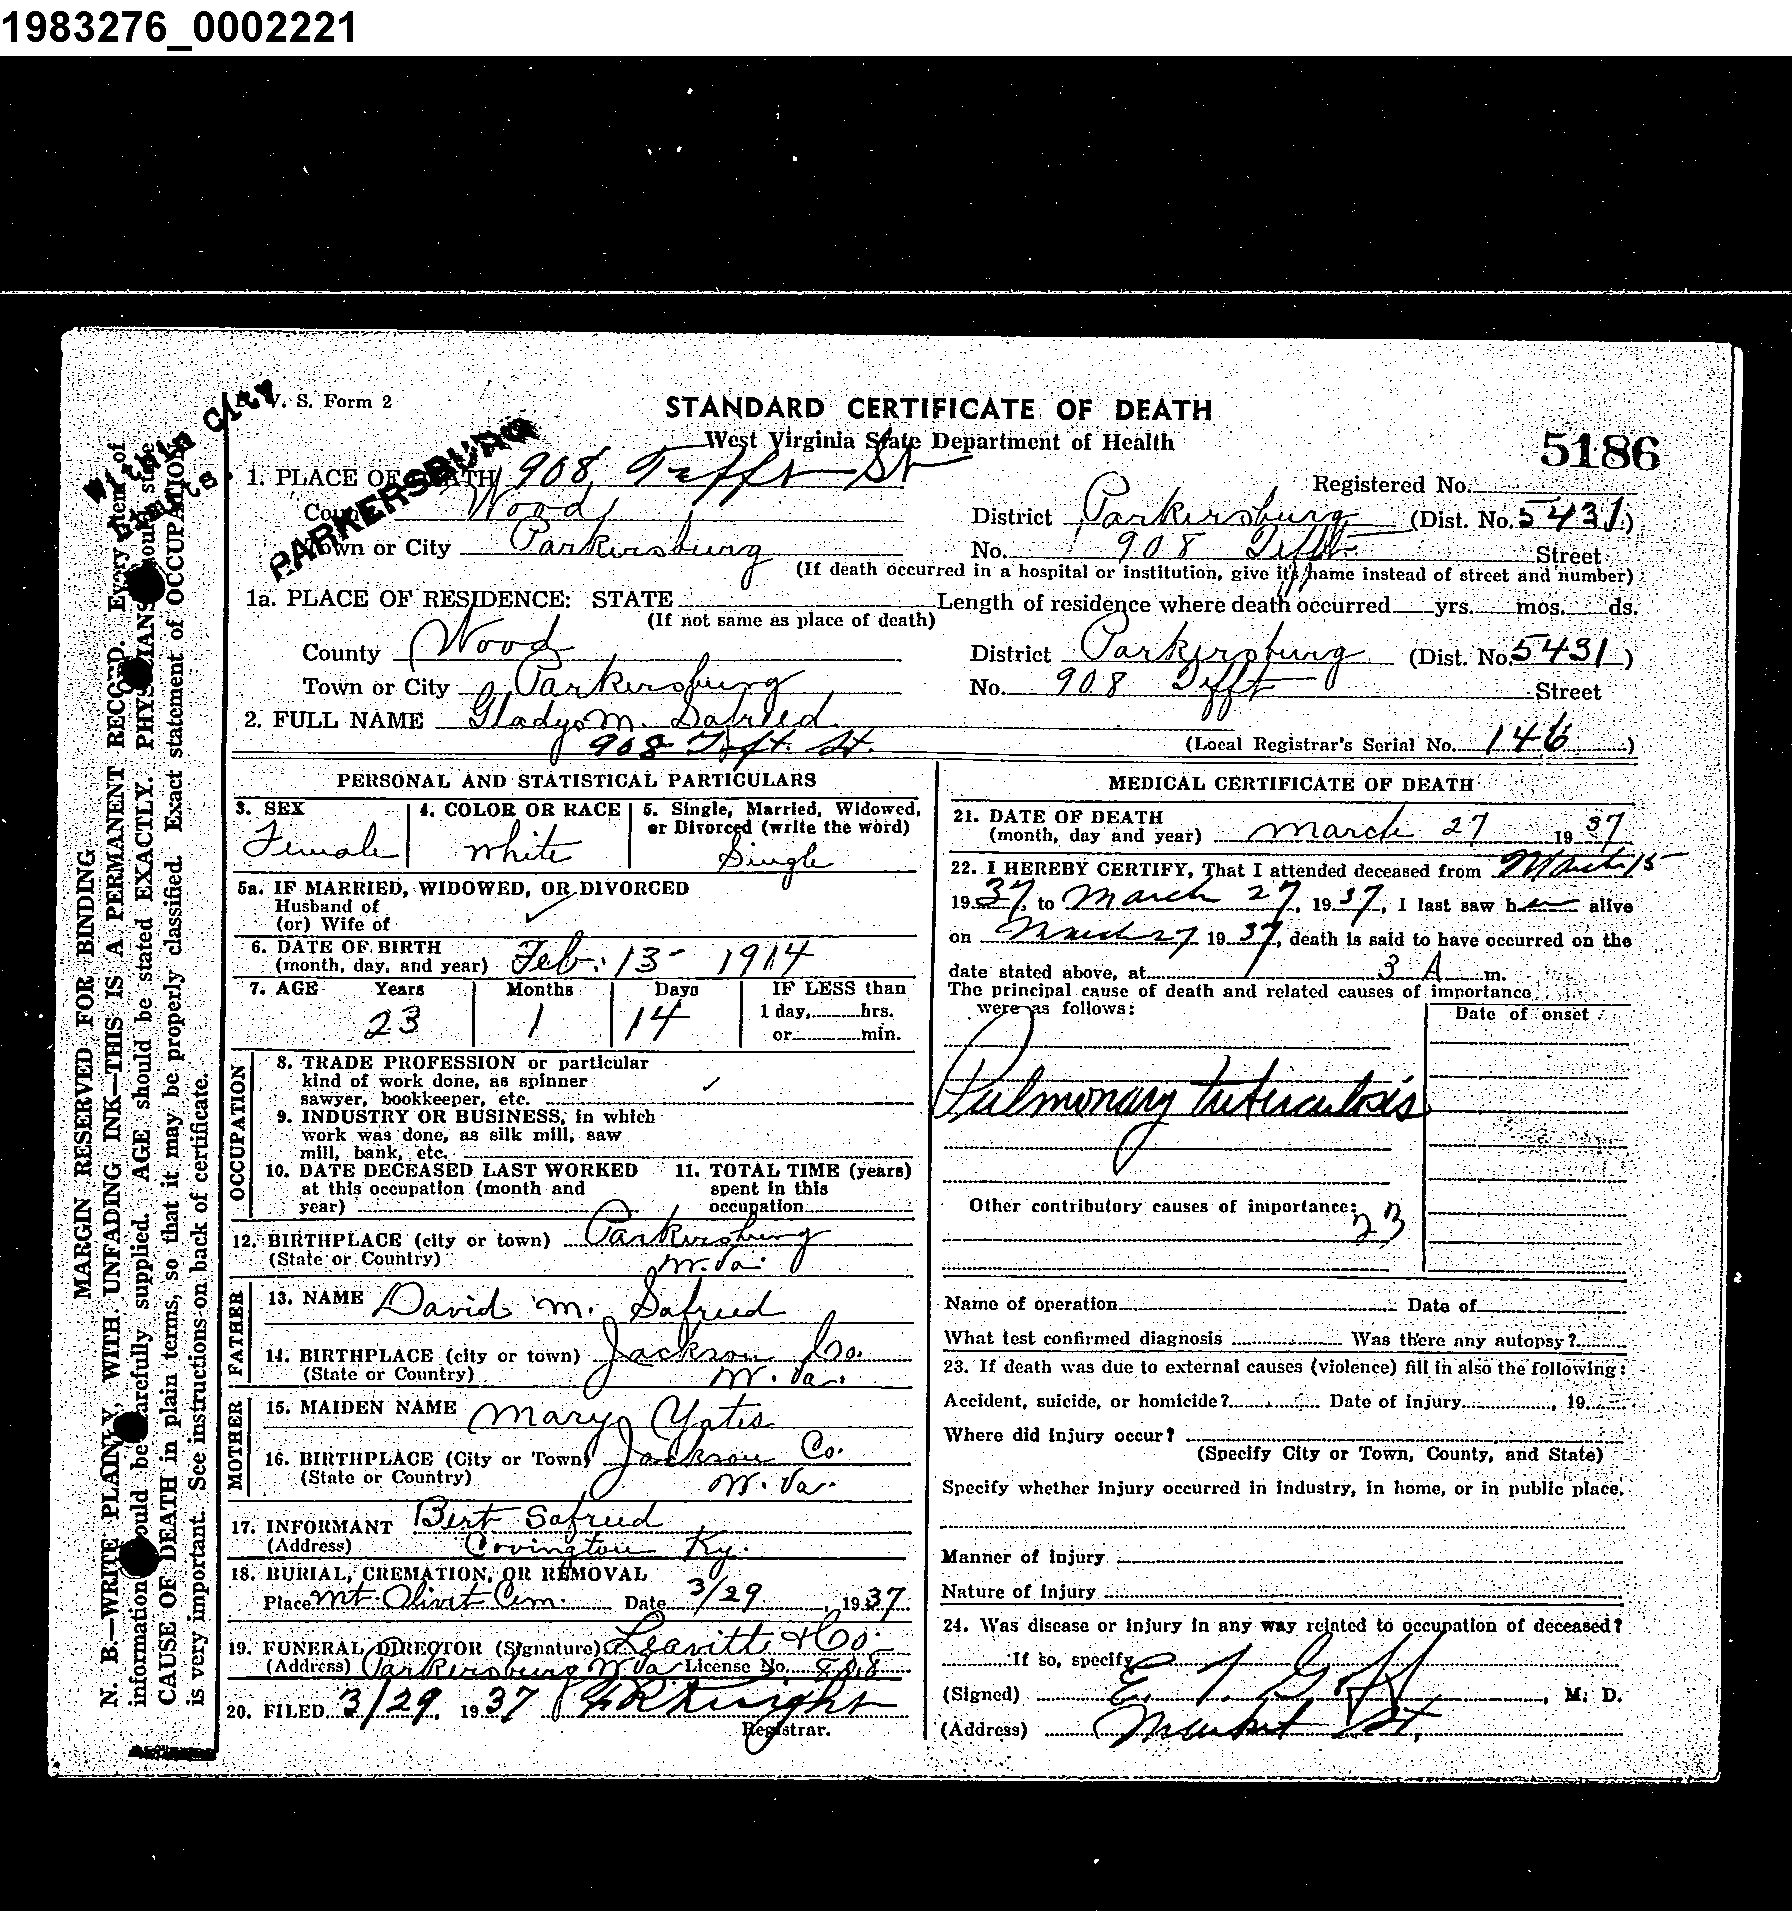 1983276_0002221
V. S. Form 2
Within City
Limits.
PARKERSBURG
STANDARD CERTIFICATE OF DEATH
West Virginia State Department of Health
5186
1. PLACE OF DEATH 908 Tefft St
Registered No.
County Wood
District Parkersburg (Dist. No. 5431)
Town or City Parkersburg
No. 908 Tefft Street
(If death occurred in a hospital or institution, give its name instead of street and number)
1a. PLACE OF RESIDENCE: STATE
Length of residence where death occurred yrs. mos. ds.
(If not same as place of death)
County Wood
District Parkersburg (Dist. No. 5431)
Town or City Parkersburg
No. 908 Tefft Street
2. FULL NAME Gladys M. Safreed
908 Tefft St.
(Local Registrar's Serial No. 146)
PERSONAL AND STATISTICAL PARTICULARS
3. SEX
Female
4. COLOR OR RACE
White
5. Single, Married, Widowed,
or Divorced (write the word)
Single
5a. IF MARRIED, WIDOWED, OR DIVORCED
Husband of
(or) Wife of
6. DATE OF BIRTH
(month, day, and year) Feb. 13 - 1914
7. AGE Years Months Days IF LESS than
23 1 14 1 day, hrs.
or min.
OCCUPATION
8. TRADE PROFESSION or particular
kind of work done, as spinner
sawyer, bookkeeper, etc.
9. INDUSTRY OR BUSINESS, in which
work was done, as silk mill, saw
mill, bank, etc.
10. DATE DECEASED LAST WORKED
at this occupation (month and
year)
11. TOTAL TIME (years)
spent in this
occupation
12. BIRTHPLACE (city or town) Parkersburg
(State or Country) W. Va.
FATHER
13. NAME David M. Safreed
14. BIRTHPLACE (city or town) Jackson Co.
(State or Country) W. Va.
MOTHER
15. MAIDEN NAME Mary Yates
16. BIRTHPLACE (City or Town) Jackson Co.
(State or Country) W. Va.
17. INFORMANT Bert Safreed
(Address) Covington Ky.
18. BURIAL, CREMATION, OR REMOVAL
Place Mt. Olivet Cem. Date 3/29, 1937
19. FUNERAL DIRECTOR (Signature) Leavitt & Co.
(Address) Parkersburg W Va License No. 808
20. FILED 3/29, 1937 Knight
Registrar.
MEDICAL CERTIFICATE OF DEATH
21. DATE OF DEATH
(month, day and year) March 27 1937
22. I HEREBY CERTIFY, That I attended deceased from March 15
1937, to March 27, 1937, I last saw her alive
on March 27 1937, death is said to have occurred on the
date stated above, at 3 A m.
The principal cause of death and related causes of importance
were as follows:
Date of onset
Pulmonary tuberculosis
Other contributory causes of importance:
23
Name of operation Date of
What test confirmed diagnosis Was there any autopsy?
23. If death was due to external causes (violence) fill in also the following:
Accident, suicide, or homicide? Date of injury , 19
Where did injury occur?
(Specify City or Town, County, and State)
Specify whether injury occurred in industry, in home, or in public place.
Manner of injury
Nature of injury
24. Was disease or injury in any way related to occupation of deceased?
If so, specify
(Signed) E. T. Goff, M. D.
(Address) Market St.
MARGIN RESERVED FOR BINDING
N. B.—WRITE PLAINLY, WITH UNFADING INK—THIS IS A PERMANENT RECORD. Every item of
information should be carefully supplied. AGE should be stated EXACTLY. PHYSICIANS should state
CAUSE OF DEATH in plain terms, so that it may be properly classified. Exact statement of OCCUPATION
is very important. See instructions on back of certificate.